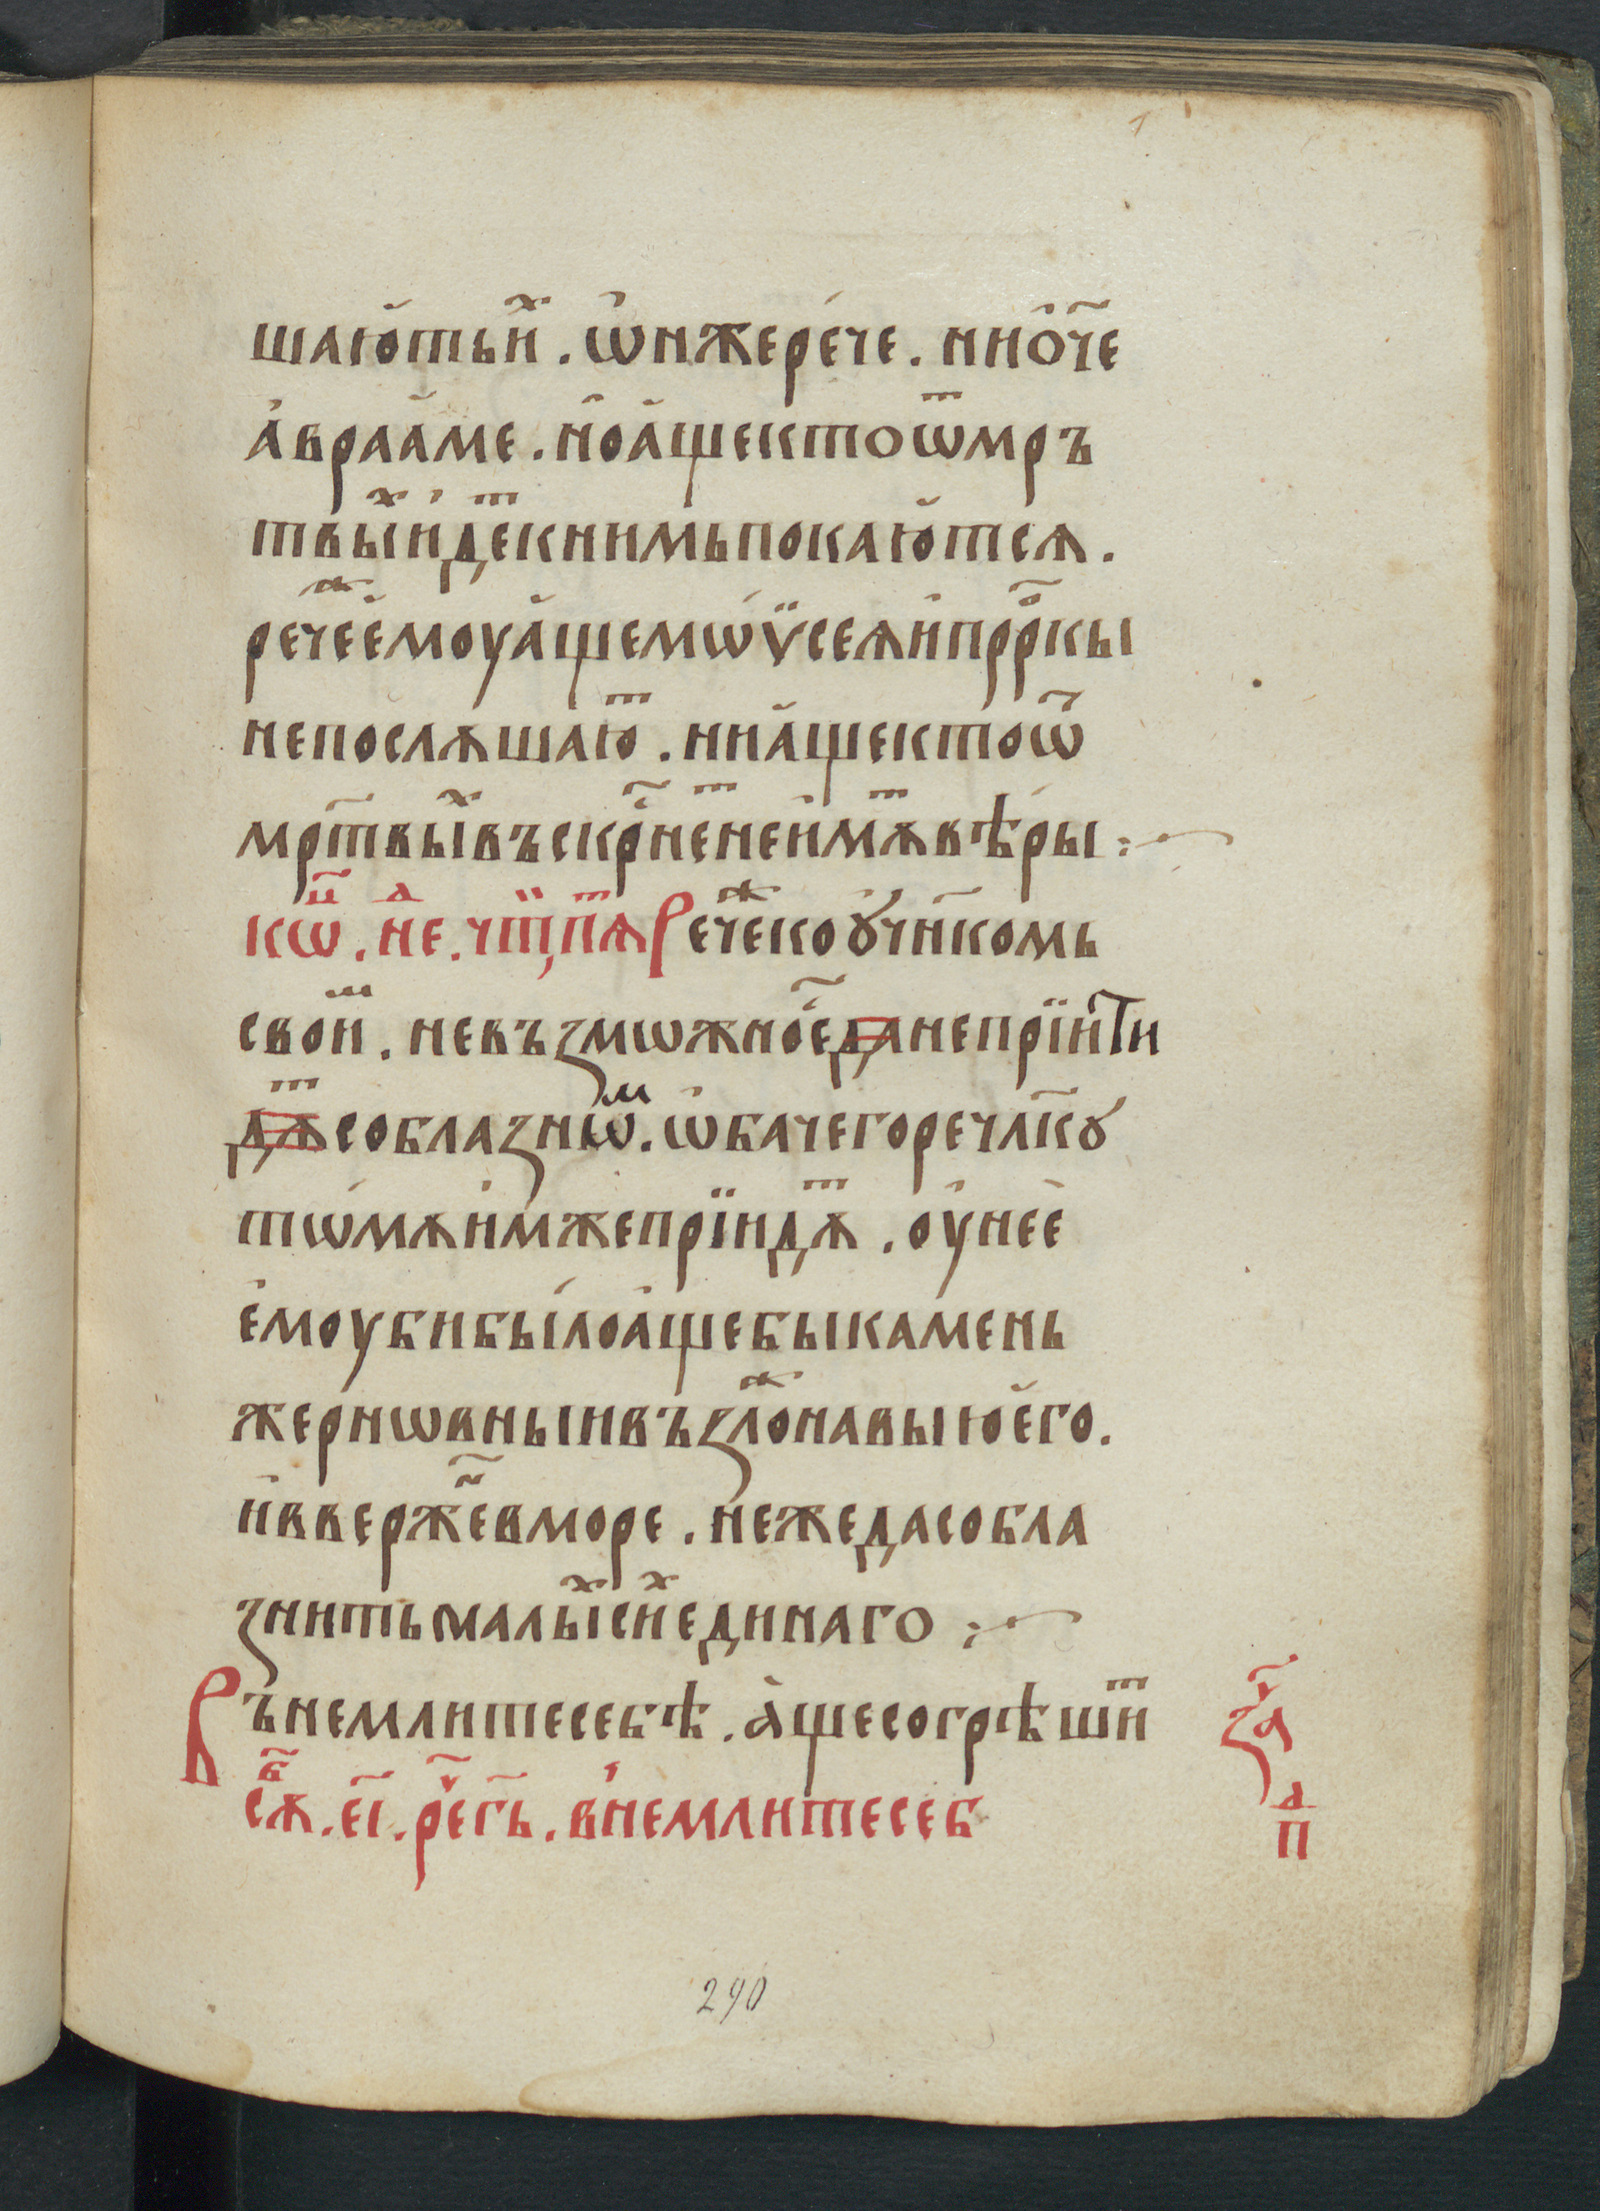 шаю҆тьи҆ⷯ . ѡ҆нжере́че . нио҆ч҃е
а҆враа҆ме . но҆а҆щектоѿмръ
твы҆ⷯи́де́ⷮкнимьпокаю҆тсѧ .
рече́ⷤе҆моуа҆щемѡѵ̈сеѫи҆прⷪ҇ркы
непослѫшаю҆ⷮ . ниа҆щектоѿ
мр҃твы҆ⷯвъскрⷭ҇неⷮнеи҆мѫⷮвѣ́ры :~
кѡⷰ҇ . неⷣ . чт̈,пѧⷮ Речеⷤкоꙋ҆чн҃комь
свои҆ⷨ . невъꙁмѡжное҆́дⷭ҇анепрїи҆ти
дѫⷮсоблаꙁнѡⷨ . ѡ҆бачегоречлк҃ꙋ
тѡ́мѫи҆мжепрїидѫⷮ . оу҆нее҆
е҆моубибы́лоа҆щебыкамень
жерно́вныивъꙁло́ⷤнавыюе҆го .
и҆ввержеⷩ҇вморе . нежедасобла
ꙁнитьмалы́ⷯси́ⷯединаго :~
Вънемлитесебѣ . а҆щесогрѣши́ⷮ
сѫⷠ҇ . е҃і . рⷱ҇егь҃ . в́немлитесеб
ꙁаⷱ҇
пд
290